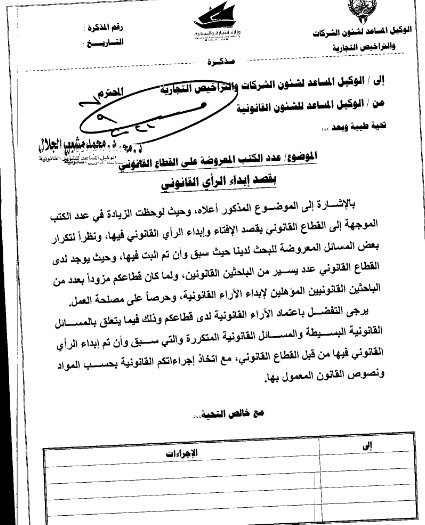 الوكيل المساعد لشئون الشركات
والتراخيص التجارية
وزارة التجارة والصناعة
رقم المذكرة :
التاريخ :
مذكرة
إلى / الوكيل المساعد لشئون الشركات والتراخيص التجارية المحترم
من / الوكيل المساعد للشئون القانونية
تحية طيبة وبعد ...
د. محمد مشبب الجلال
الوكيل المساعد للشئون القانونية
الموضوع/ عدد الكتب المعروضة على القطاع القانوني
بقصد إبداء الرأي القانوني
بالإشارة إلى الموضوع المذكور أعلاه، وحيث لوحظت الزيادة في عدد الكتب
الموجهة إلى القطاع القانوني بقصد الإفتاء وإبداء الرأي القانوني فيها، ونظراً لتكرار
بعض المسائل المعروضة للبحث لدينا حيث سبق وأن تم البت فيها، وحيث يوجد لدى
القطاع القانوني عدد يسير من الباحثين القانونين، ولما كان قطاعكم مزوداً بعدد من
الباحثين القانونيين المؤهلين لإبداء الآراء القانونية، وحرصاً على مصلحة العمل.
يرجى التفضل باعتماد الآراء القانونية لدى قطاعكم وذلك فيما يتعلق بالمسائل
القانونية البسيطة والمسائل القانونية المتكررة والتي سبق وأن تم إبداء الرأي
القانوني فيها من قبل القطاع القانوني، مع اتخاذ إجراءاتكم القانونية بحسب المواد
ونصوص القانون المعمول بها.
مع خالص التحية...
إلى
الإجراءات